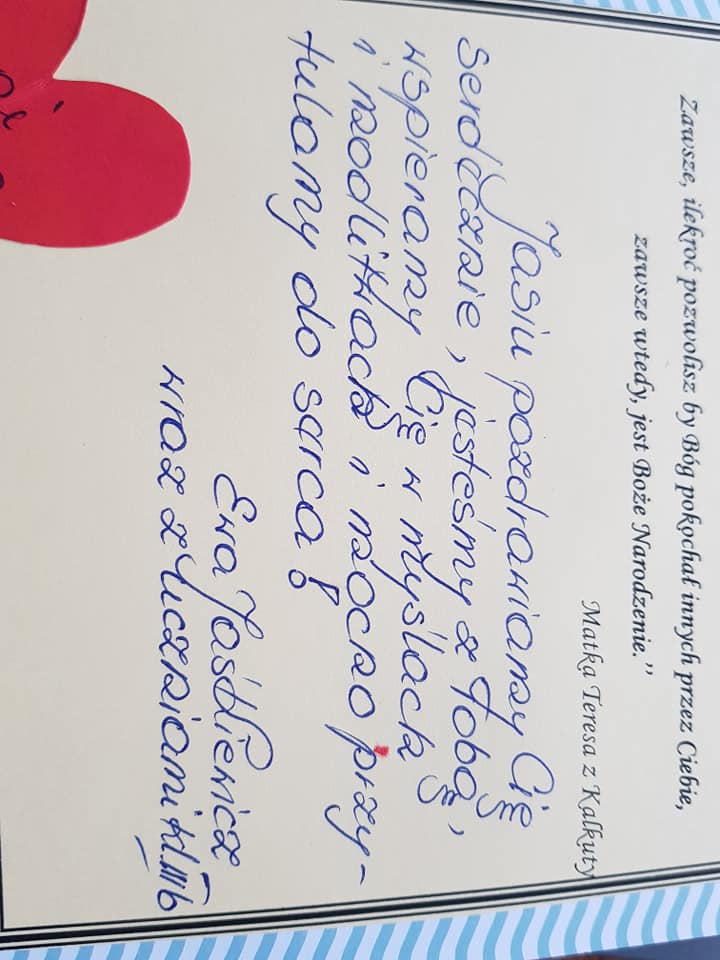 Zawsze, ilekroć pozwolisz by Bóg pokochał innych przez Ciebie,
zawsze wtedy, jest Boże Narodzenie.”
Matka Teresa z Kalkuty
Jasiu pozdrawiamy Cię
serdecznie, jesteśmy z Tobą,
wspieramy Cię w myślach
i modlitwach i mocno przy-
tulamy do serca!
Ewa
wraz z Uczniami kl. III b